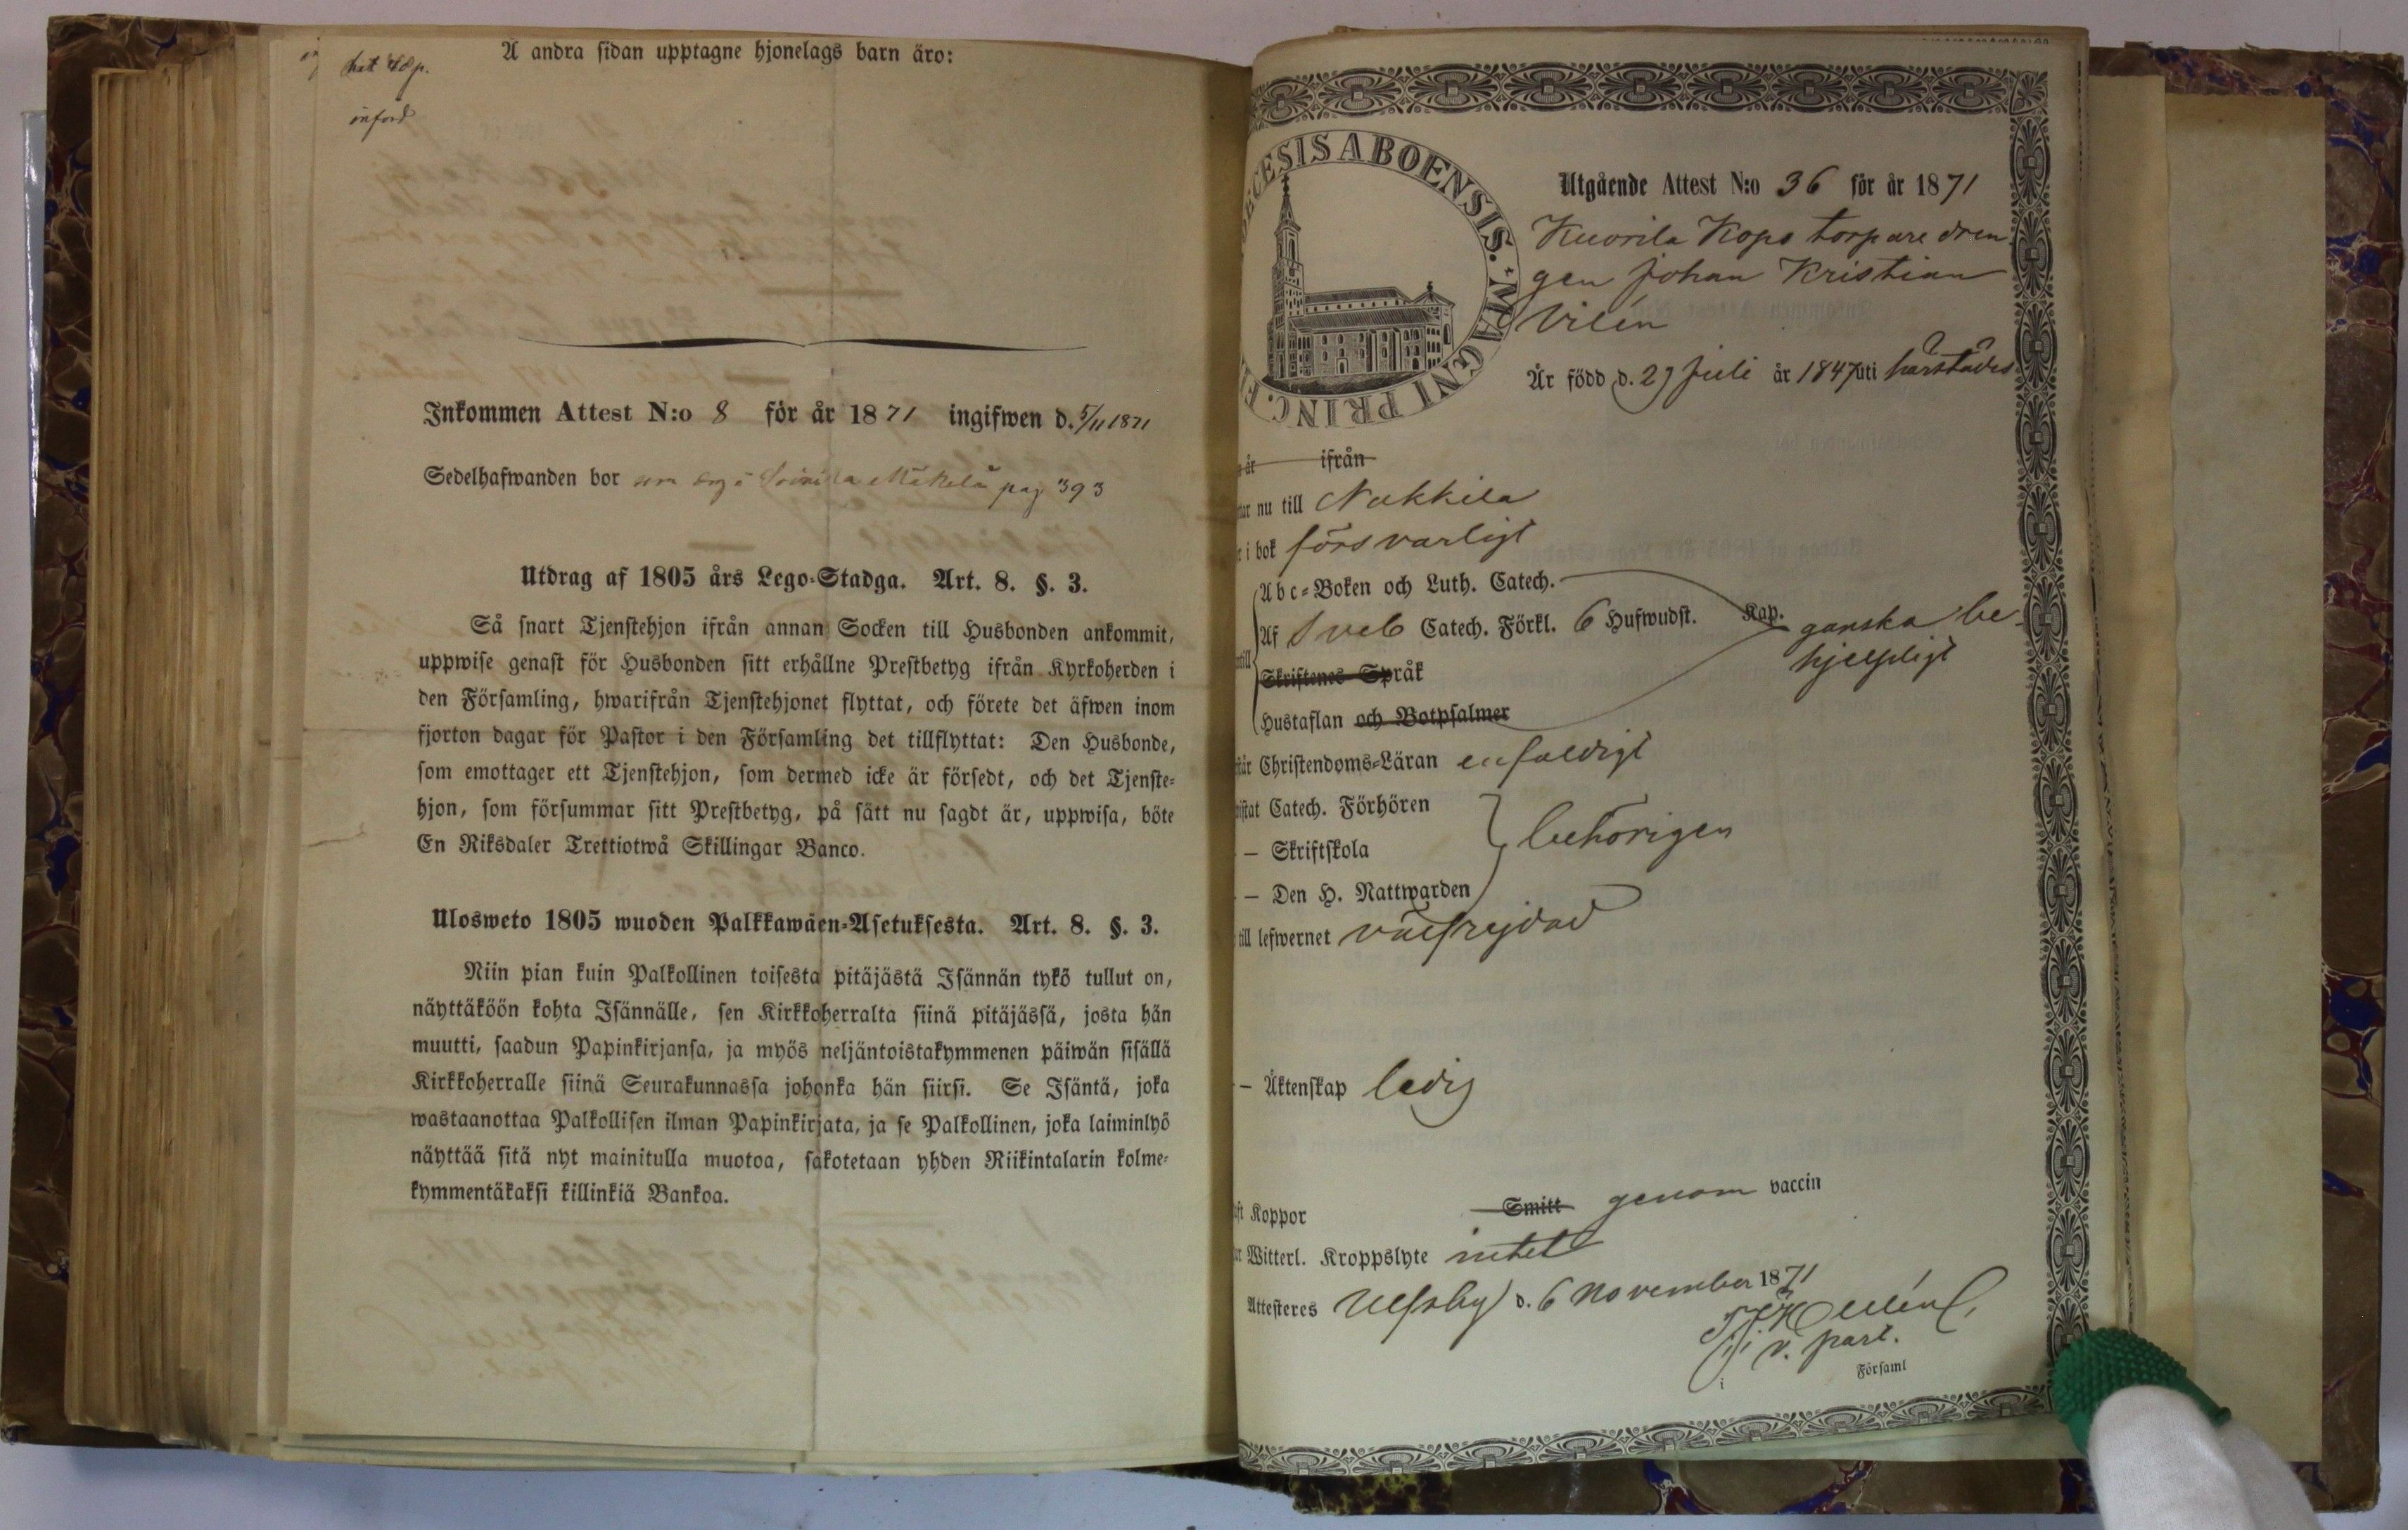 Å andra sidan upptagne hjonelags barn äro:
införd
Inkommen Attest N:o 8 för år 1871 ingifwen d. 5/11 1871
Sedelhafwanden bor Mäkelä pag 393
Utdrag af 1805 års Lego-Stadga. Art. 8. §. 3.
Så snart Tjenstehjon ifrån annan Socken till Husbonden ankommit,
uppwise genast för Husbonden sitt erhållne Prestbetyg ifrån Kyrkoherden i
den Församling, hwarifrån Tjenstehjonet flyttat, och förete det äfwen inom
fjorton dagar för Pastor i den Församling det tillflyttat: Den Husbonde,
som emottager ett Tjenstehjon, som dermed icke är försedt, och det Tjenste-
hjon, som försummar sitt Prestbetyg, på sätt nu sagdt är, uppwisa, böte
En Riksdaler Trettiotwå Skillingar Banco.
Ulosweto 1805 wuoden Palkkawäen-Asetuksesta. Art. 8. §. 3.
Niin pian kuin Palkollinen toisesta pitäjästä Isännän tykö tullut on,
näyttäköön kohta Isännälle, sen Kirkkoherralta siinä pitäjässä, josta hän
muutti, saadun Papinkirjansa, ja myös neljäntoistakymmenen päiwän sisällä
Kirkkoherralle siinä Seurakunnassa johonka hän siirsi. Se Isäntä, joka
wastaanottaa Palkollisen ilman Papinkirjata, ja se Palkollinen, joka laiminlyö
näyttää sitä nyt mainitulla muotoa, sakotetaan yhden Riikintalarin kolme-
kymmentäkaksi killinkiä Bankoa.
ECESIS ABOENSIS. MAGNI PRINC.
Utgående Attest N:o 36 för år 1871
Kuorila Kopo torpare dren
gen Johan Kristian
Vilén
Är född d. 29 Juli år 1847 uti härstädes
år ifrån
nu till Nakkila
i bok försvarligt
Abc-Boken och Luth. Catech.
Af Sveb Catech. Förkl. 6 Hufwudst. Kap. ganska be-
hjelpligt
Skriftenes Språk
Hustaflan och Botpsalmer
Christendoms-Läran enfaldigt
Catech. Förhören
— Skriftskola behörigen
— Den H. Nattwarden
till lefwernet välfrejdad
— Äktenskap ledig
Koppor Smitt genom vaccin
Witterl. Kroppslyte intet
Attesteras Ulfsby d. 6 November 1871
v. past.
i Församl